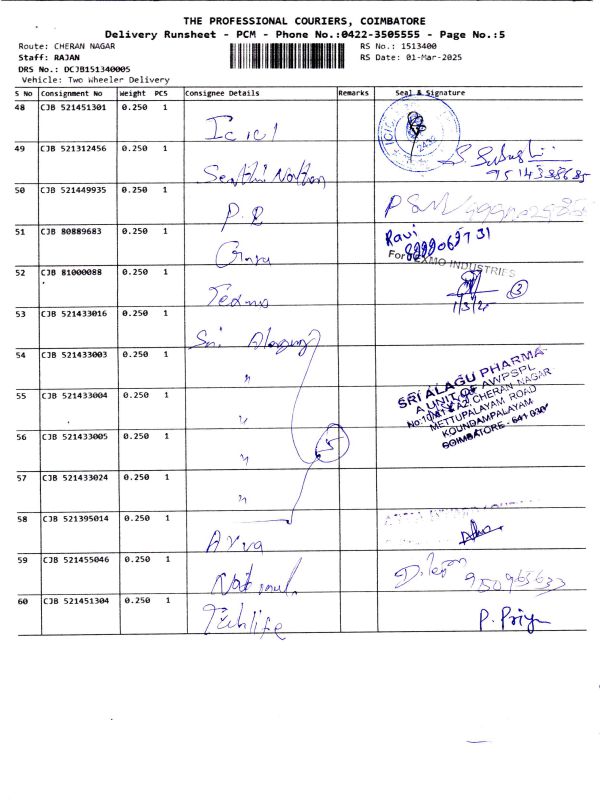 THE PROFESSIONAL COURIERS, COIMBATORE
Delivery Runsheet - PCM - Phone No.:0422-3505555 - Page No.:5
Route: CHERAN NAGAR RS No.: 1513400
Staff: RAJAN RS Date: 01-Mar-2025
DRS No.: DCJB151340005
Vehicle: Two Wheeler Delivery
S No Consignment No Weight PCS Consignee Details Remarks Seal & Signature
48 CJB 521451301 0.250 1
Icicl
49 CJB 521312456 0.250 1
9514338685
50 CJB 521449935 0.250 1
P.R
51 CJB 80889683 0.250 1
Ravi
For TEXMO INDUSTRIES
52 CJB 81000088 0.250 1
Texmo
1/3/25 3
53 CJB 521433016 0.250 1
Sri
54 CJB 521433003 0.250 1
"
SRI ALAGU PHARMA
A UNIT OF AWPSPL
CHERAN NAGAR
METTUPALAYAM ROAD
KOUNDAMPALAYAM
COIMBATORE - 641 030
55 CJB 521433004 0.250 1
"
56 CJB 521433005 0.250 1
"
5
57 CJB 521433024 0.250 1
"
58 CJB 521395014 0.250 1
59 CJB 521455046 0.250 1
National
60 CJB 521451304 0.250 1
Techlife
P. Priya